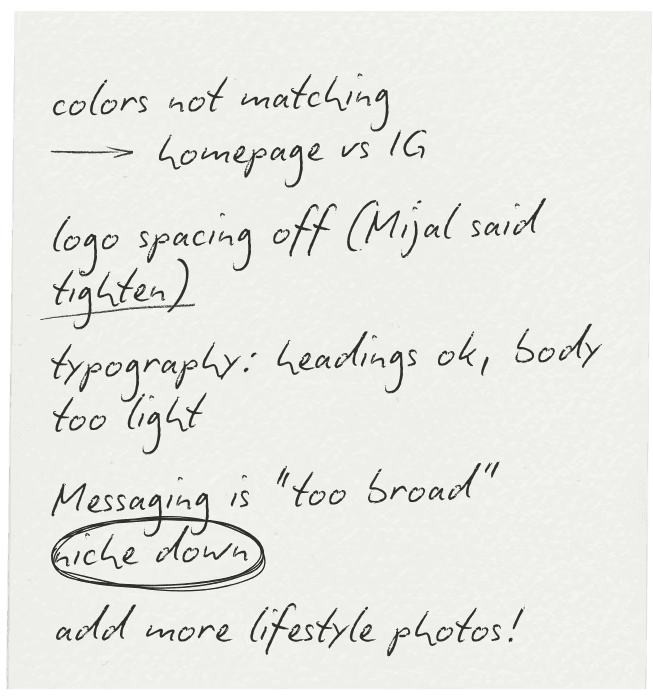 colors not matching
→ homepage vs IG
logo spacing off (Mijal said
tighten)
typography: headings ok, body
too light
Messaging is "too broad"
niche down
add more lifestyle photos!